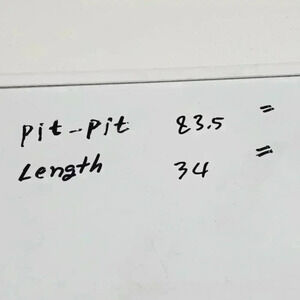 Pit-Pit 23.5 "
Length 34 "